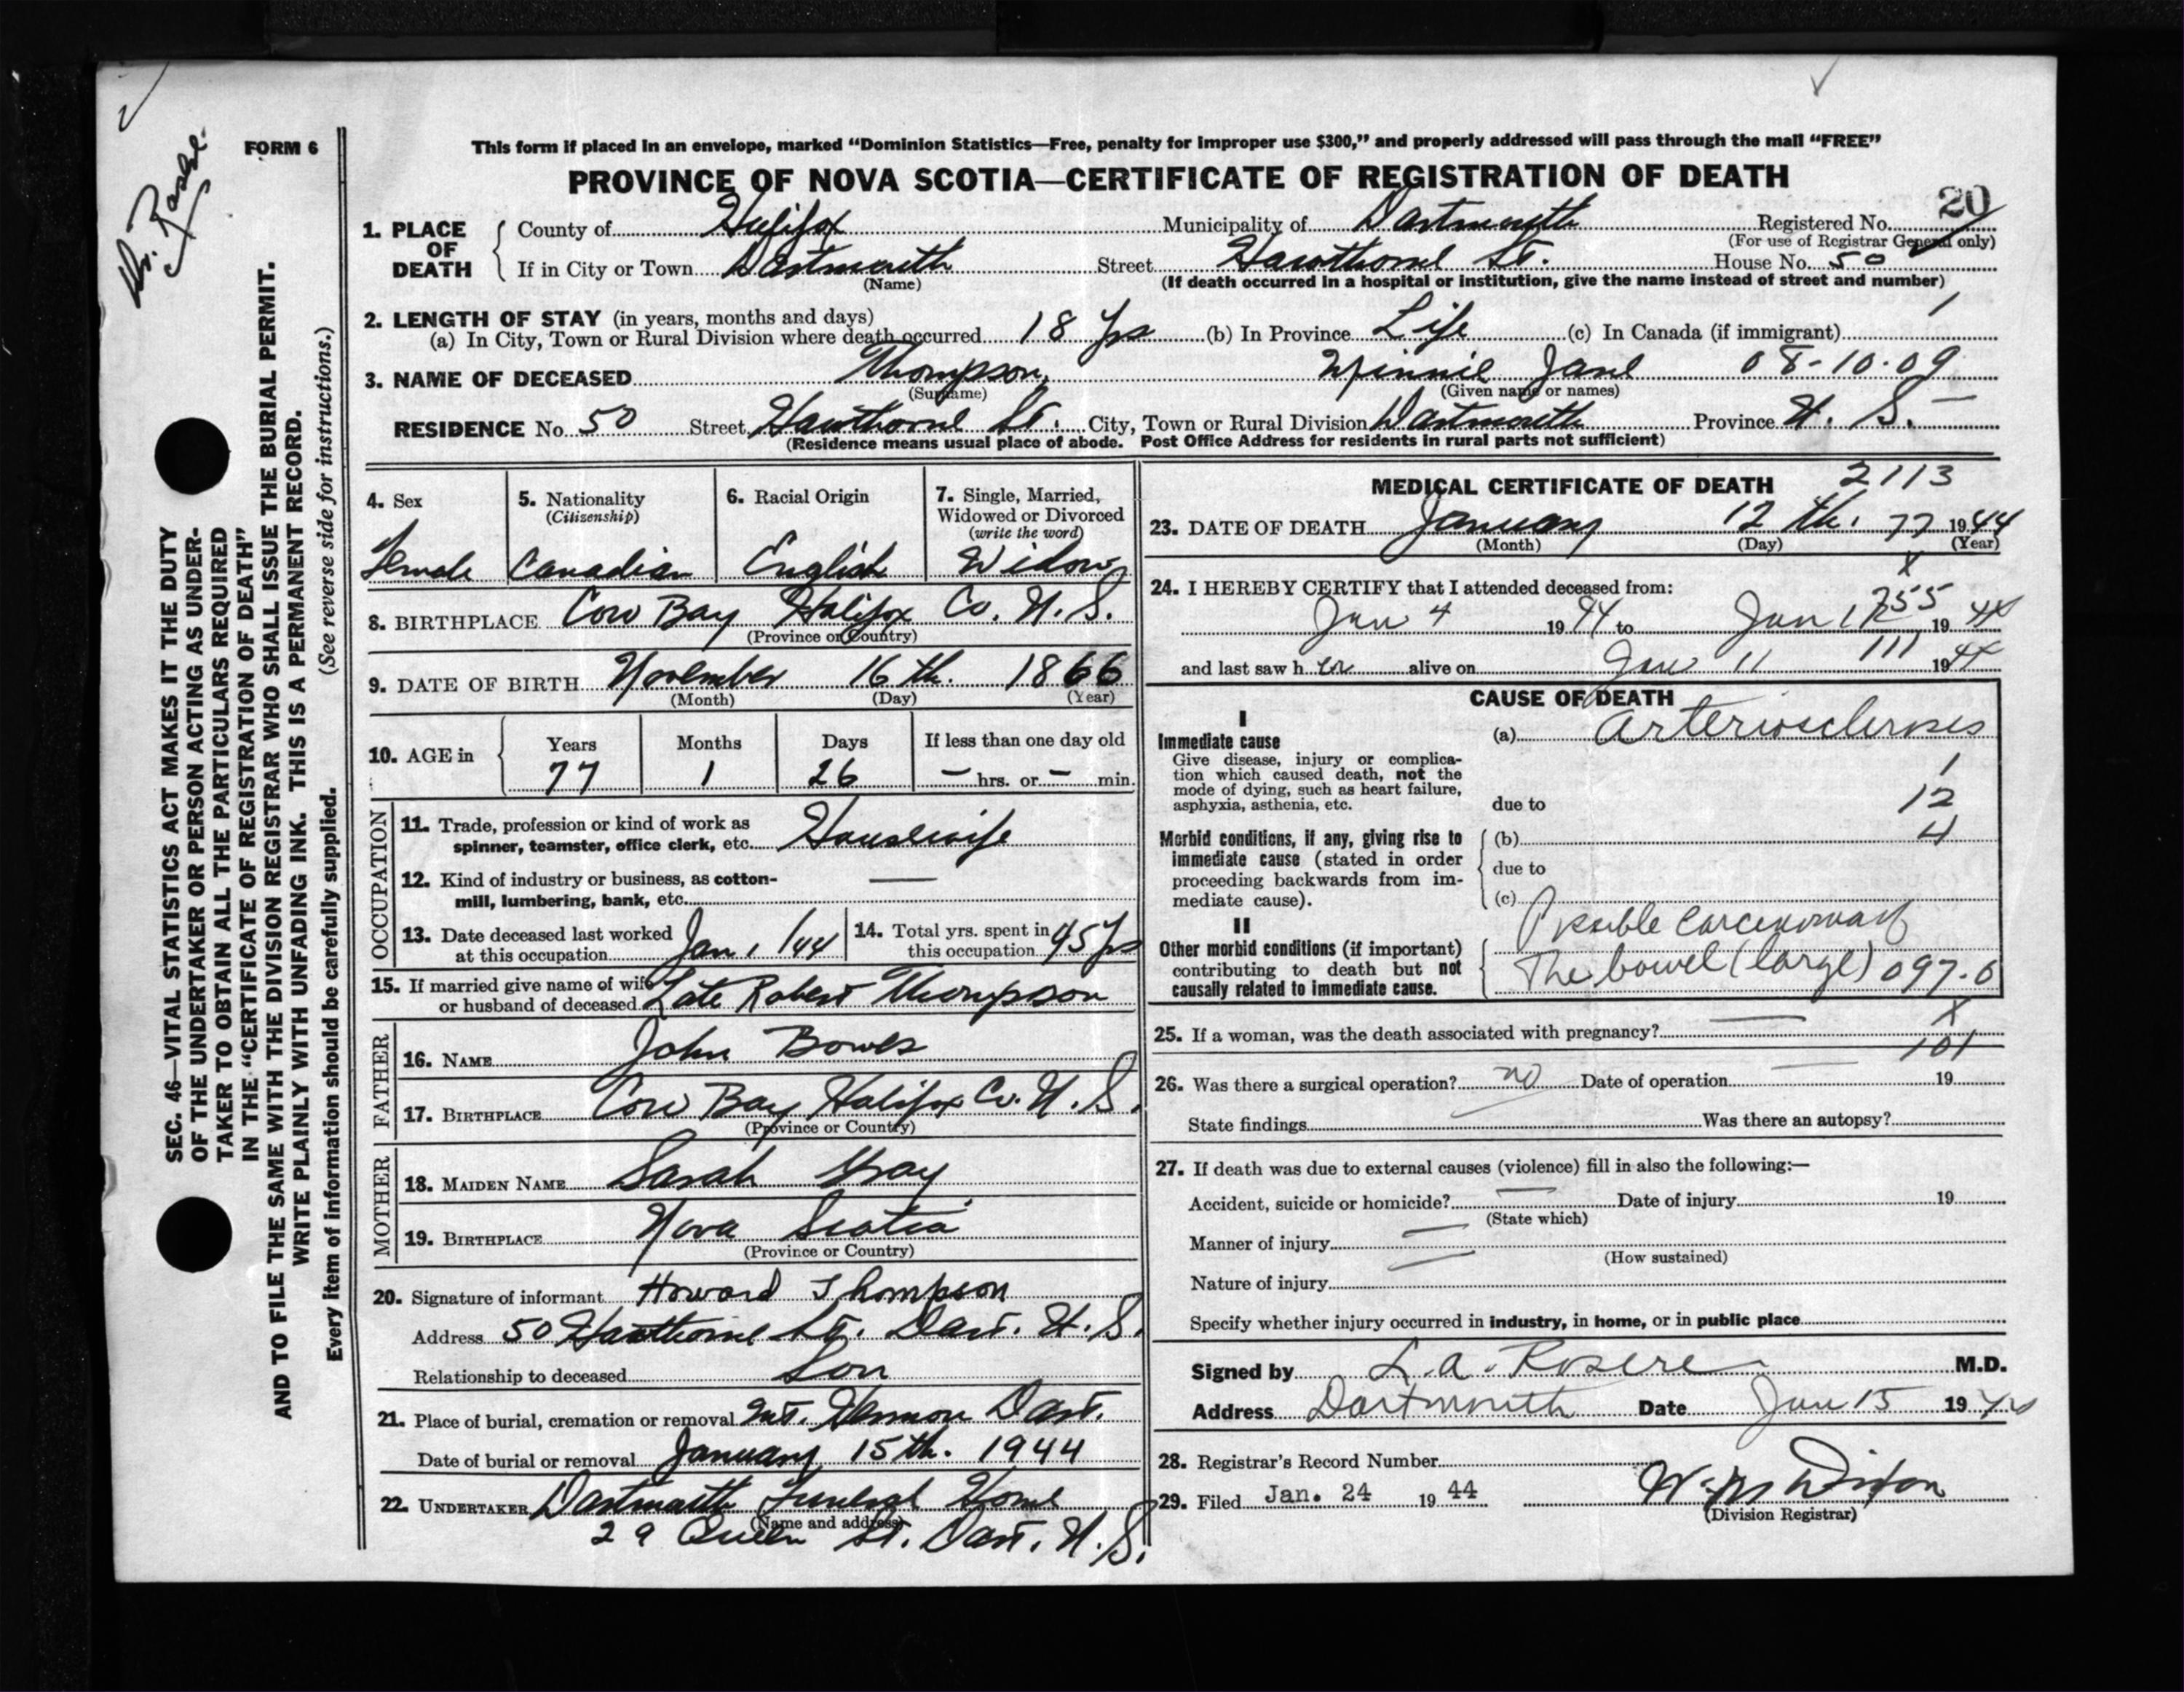 FORM 6
Dr.
SEC. 46—VITAL STATISTICS ACT MAKES IT THE DUTY
OF THE UNDERTAKER OR PERSON ACTING AS UNDER-
TAKER TO OBTAIN ALL THE PARTICULARS REQUIRED
IN THE "CERTIFICATE OF REGISTRATION OF DEATH"
AND TO FILE THE SAME WITH THE DIVISION REGISTRAR WHO SHALL ISSUE THE BURIAL PERMIT.
WRITE PLAINLY WITH UNFADING INK. THIS IS A PERMANENT RECORD.
Every item of information should be carefully supplied. (See reverse side for instructions.)
This form if placed in an envelope, marked "Dominion Statistics—Free, penalty for improper use $300," and properly addressed will pass through the mail "FREE"
PROVINCE OF NOVA SCOTIA—CERTIFICATE OF REGISTRATION OF DEATH
1. PLACE OF DEATH County of Halifax Municipality of Dartmouth Registered No. 20
(For use of Registrar General only)
If in City or Town Dartmouth Street Hawthorne St. House No. 50
(Name) (If death occurred in a hospital or institution, give the name instead of street and number)
2. LENGTH OF STAY (in years, months and days) 1
(a) In City, Town or Rural Division where death occurred 18 yrs (b) In Province Life (c) In Canada (if immigrant)
3. NAME OF DECEASED Thompson, Minnie Jane 08-10-09
(Surname) (Given name or names)
RESIDENCE No. 50 Street Hawthorne St. City, Town or Rural Division Dartmouth Province N. S.
(Residence means usual place of abode. Post Office Address for residents in rural parts not sufficient)
4. Sex Female
5. Nationality (Citizenship) Canadian
6. Racial Origin English
7. Single, Married, Widowed or Divorced (write the word) Widow
8. BIRTHPLACE Cow Bay Halifax Co. N. S.
(Province or Country)
9. DATE OF BIRTH November 16th. 1866
(Month) (Day) (Year)
10. AGE in Years 77 Months 1 Days 26 If less than one day old — hrs. or — min.
OCCUPATION
11. Trade, profession or kind of work as
spinner, teamster, office clerk, etc. Housewife
12. Kind of industry or business, as cotton-
mill, lumbering, bank, etc. —
13. Date deceased last worked
at this occupation Jan. 1/44
14. Total yrs. spent in
this occupation 45 yrs
15. If married give name of wife
or husband of deceased Late Robert Thompson
FATHER
16. NAME John Bowes
17. BIRTHPLACE Cow Bay Halifax Co. N. S.
(Province or Country)
MOTHER
18. MAIDEN NAME Sarah Gray
19. BIRTHPLACE Nova Scotia
(Province or Country)
20. Signature of informant Howard Thompson
Address 50 Hawthorne St. Dart. N. S.
Relationship to deceased Son
21. Place of burial, cremation or removal Mt. Hermon Dart.
Date of burial or removal January 15th. 1944
22. UNDERTAKER Dartmouth Funeral Home
(Name and address)
29 Queen St. Dart. N. S.
MEDICAL CERTIFICATE OF DEATH 2113
23. DATE OF DEATH January 12th. 77 1944
(Month) (Day) (Year)
24. I HEREBY CERTIFY that I attended deceased from: X
255
Jan 4 1944 to Jan 12 1944
and last saw her alive on Jan 11 111 1944
CAUSE OF DEATH
I
Immediate cause (a) Arteriosclerosis
Give disease, injury or complica-
tion which caused death, not the
mode of dying, such as heart failure,
asphyxia, asthenia, etc. due to
1
12
4
Morbid conditions, if any, giving rise to
immediate cause (stated in order
proceeding backwards from im-
mediate cause).
(b)
due to
(c)
II
Other morbid conditions (if important)
contributing to death but not
causally related to immediate cause.
Possible carcinoma of
The bowel (large) 097.0
X
25. If a woman, was the death associated with pregnancy? —
101
26. Was there a surgical operation? no Date of operation — 19
State findings Was there an autopsy?
27. If death was due to external causes (violence) fill in also the following:—
Accident, suicide or homicide? — Date of injury 19
(State which)
Manner of injury —
(How sustained)
Nature of injury —
Specify whether injury occurred in industry, in home, or in public place
Signed by L. A. Rosere M.D.
Address Dartmouth Date Jan 15 1944
28. Registrar's Record Number
29. Filed Jan. 24 1944 W. M. Dixon
(Division Registrar)